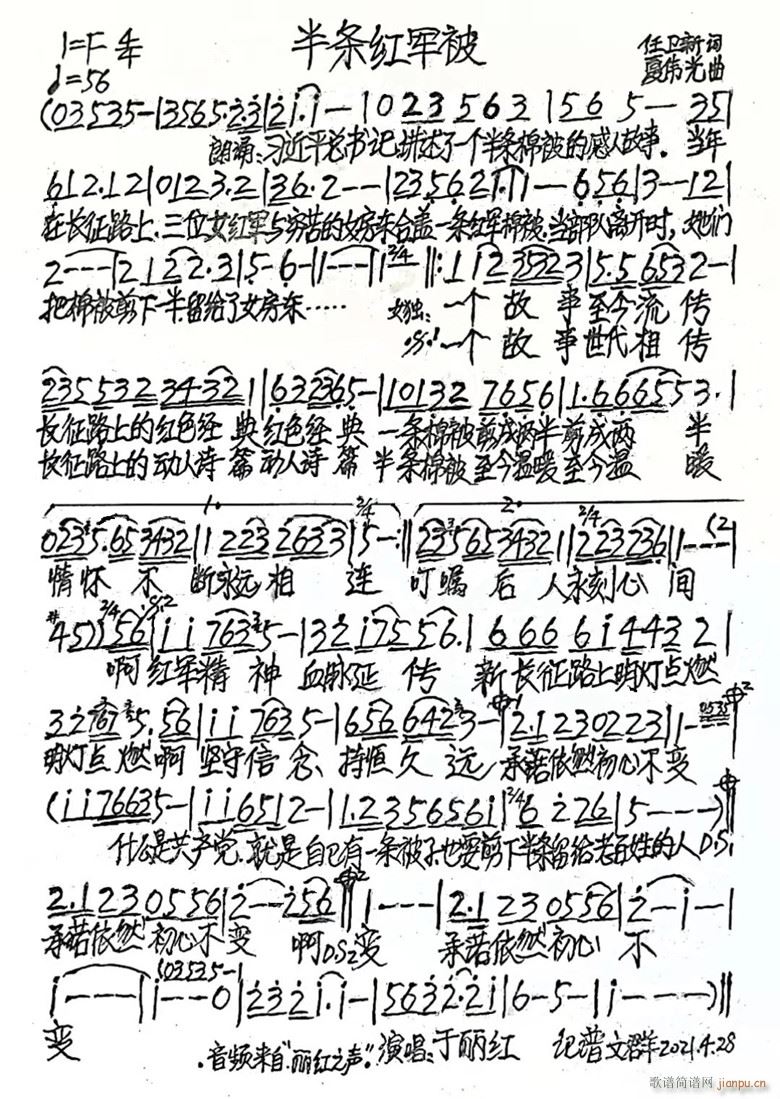 半条红军被
1=F 4/4
♩=56
任卫新词
夏伟光曲
(03535-|3565.2.3|2i.i--|0 23 563|56 5--35|
朗诵:习近平总书记,讲述了一个半条棉被的感人故事。当年
612.12|0123.2|36.2--|23562i.i|--656|3--12|
在长征路上,三位女红军与穷苦的女房东合盖一条红军棉被,当部队离开时,她们
2---|2122.3|5-6-|1---|1 2/4 ‖:112 35323|5.56532-|
把棉被剪下一半留给了女房东……
女独:一个故事至今流传
一个故事世代相传
2355323432 1|632365-|10132 7656|1.666553.|
长征路上的红色经典红色经典一条棉被剪成两半剪成两半
长征路上的动人诗篇动人诗篇半条棉被至今温暖至今温暖
1. 2/4 2.
0235.653432|1223 2633|5-:‖235653432 1|223236|1---52|
情怀不断永远相连叮嘱后人永刻心间
#45)|56|ii7635-|32i7556.|6666i4432|
啊红军精神血脉延传新长征路上明灯点燃
32767 5.56|ii7635-|6566423-|2.12302 23|1--0535|
明灯点燃啊坚守信念、持恒久远承诺依然初心不变
(ii76635-|ii6512-|1.2356561|2/4 6 226|5---)‖
什么是共产党,就是自己有一条被子,也要剪下半条留给老百姓的人D.S.
2.1230556|2--256‖1---|2.1230556|2-i-|
承诺依然初心不变啊D.S2变承诺依然初心不
i---|i--0|(03535-|232i.i-|5632.2i|6-5-|i---)‖
变
.音频来自"丽红之声".演唱:于丽红 记谱文群2021.4.28
歌谱简谱网
jianpu.cn